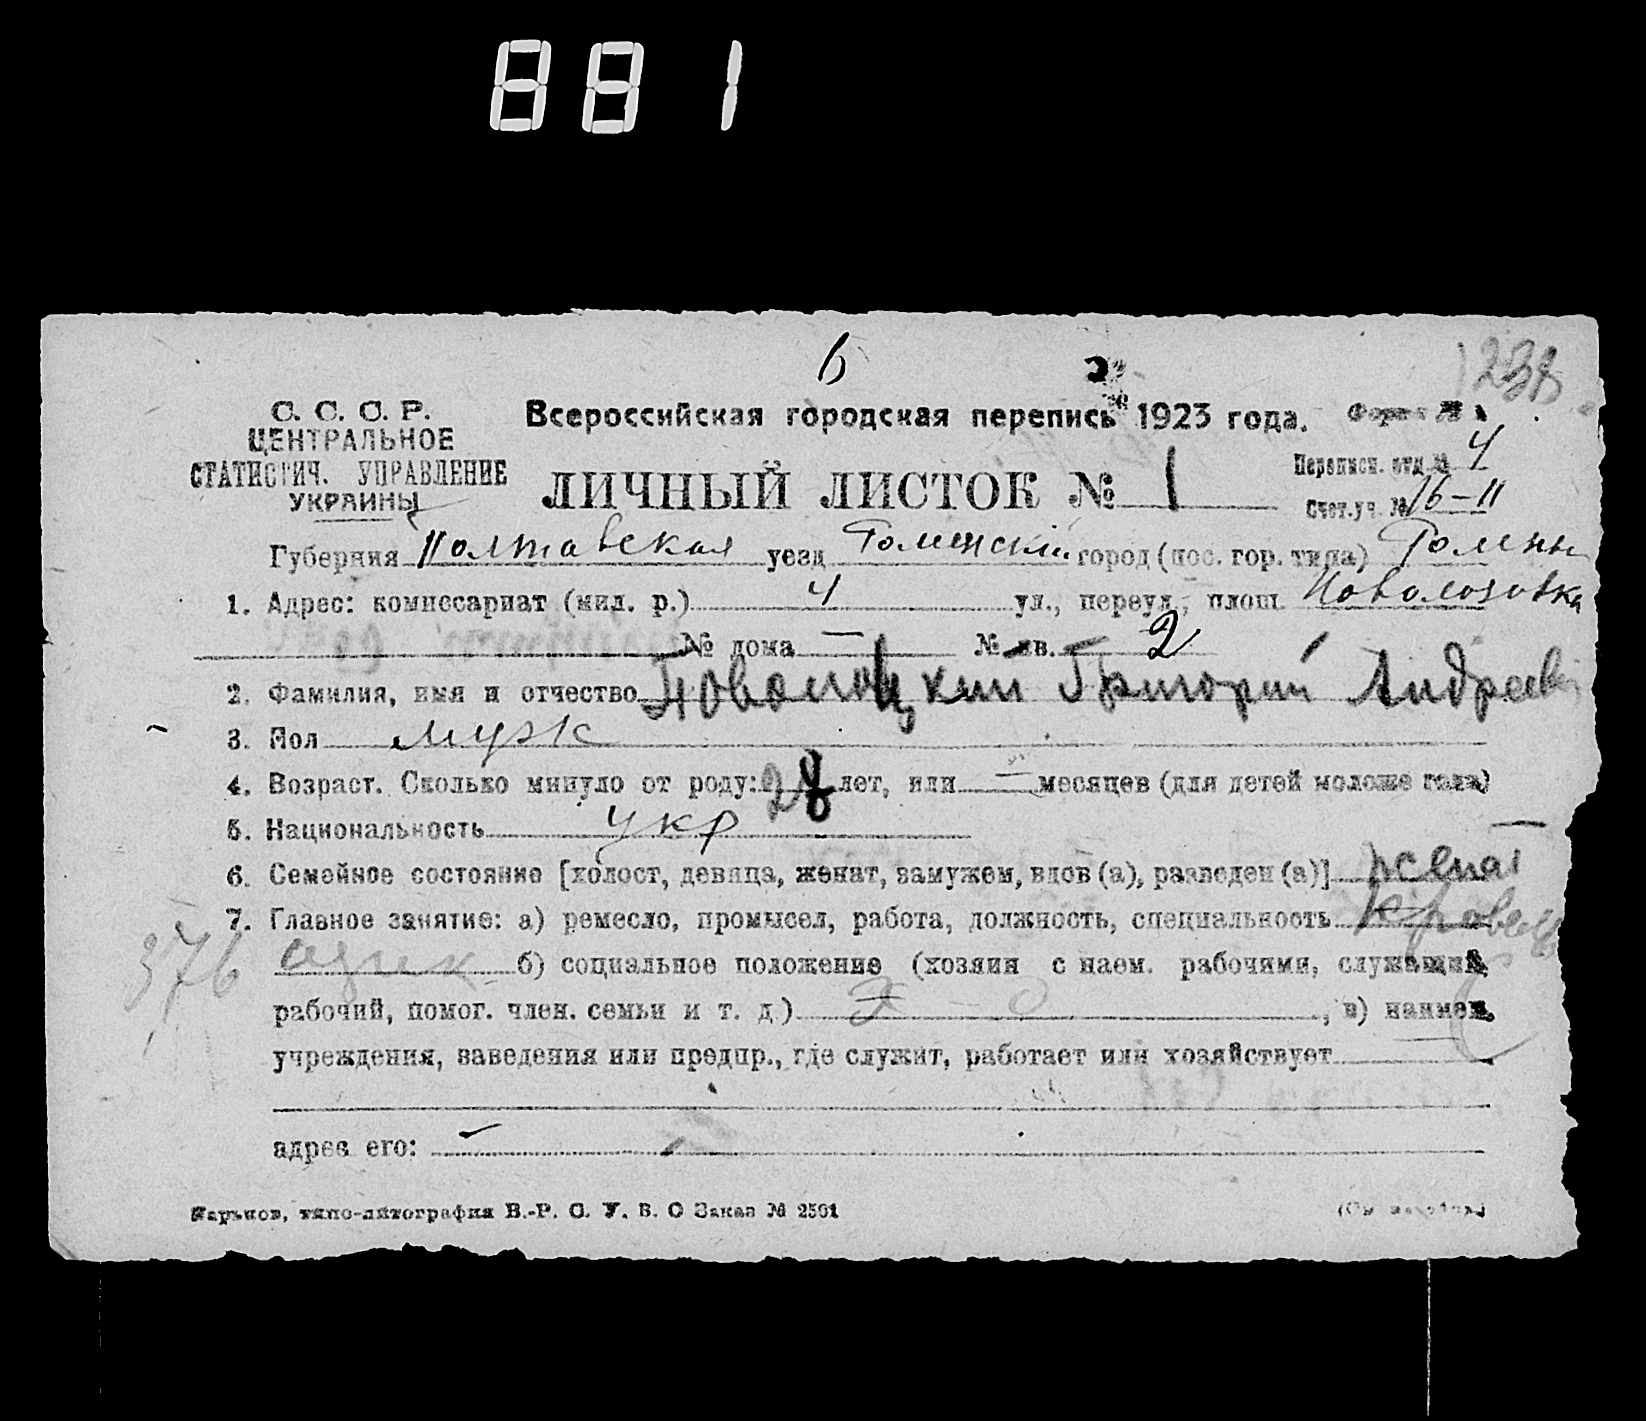 881
6
238
С. С. С. Р.
ЦЕНТРАЛЬНОЕ
СТАТИСТИЧ. УПРАВЛЕНИЕ
УКРАИНЫ
Всероссийская городская перепись 1923 года. Форма №
ЛИЧНЫЙ ЛИСТОК № 1
Переписн. отд. № 4
Счет. уч. № 16-11
Губерния Полтавская уезд Роменский город (пос. гор. типа) Ромны
1. Адрес: комиссариат (мил. р.) 4 ул., переул., площ.
№ дома — № кв. 2
2. Фамилия, имя и отчество Григорий Андреев
3. Пол муж
4. Возраст. Сколько минуло от роду: 28 лет, или — месяцев (для детей моложе года)
5. Национальность укр
6. Семейное состояние [холост, девица, женат, замужем, вдов (а), разведен (а)] женат
7. Главное занятие: а) ремесло, промысел, работа, должность, специальность
376 б) социальное положение (хозяин с наем. рабочими, служащий,
рабочий, помог. член. семьи и т. д.) , в) наимен.
учреждения, заведения или предпр., где служит, работает или хозяйствует
адрес его:
Харьков, типо-литография В.-Р. С. У. В. О Заказ № 2501